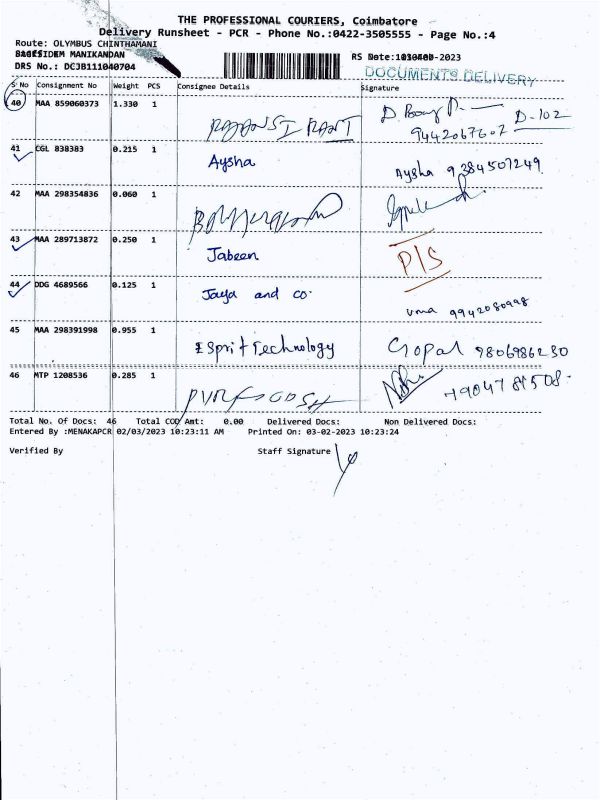 THE PROFESSIONAL COURIERS, Coimbatore
Delivery Runsheet - PCR - Phone No.:0422-3505555 - Page No.:4
Route: OLYMBUS CHINTHAMANI
MANIKANDAN RS Date: -2023
DRS No.: DCJB111040704 DOCUMENTS DELIVERY
S No Consignment No Weight PCS Consignee Details Signature
40 MAA 859060373 1.330 1
D-102
9442067602
41 CGL 838383 0.215 1 Aysha Aysha 9384507249
42 MAA 298354836 0.060 1
43 MAA 289713872 0.250 1 Jabeen P/S
44 DDG 4689566 0.125 1 Jaya and co. uma 9942080998
45 MAA 298391998 0.955 1 Esprit Technology Gopal 9806986230
46 MTP 1208536 0.285 1 7904781508
Total No. Of Docs: 46 Total COD Amt: 0.00 Delivered Docs: Non Delivered Docs:
Entered By :MENAKAPCR 02/03/2023 10:23:11 AM Printed On: 03-02-2023 10:23:24
Verified By Staff Signature